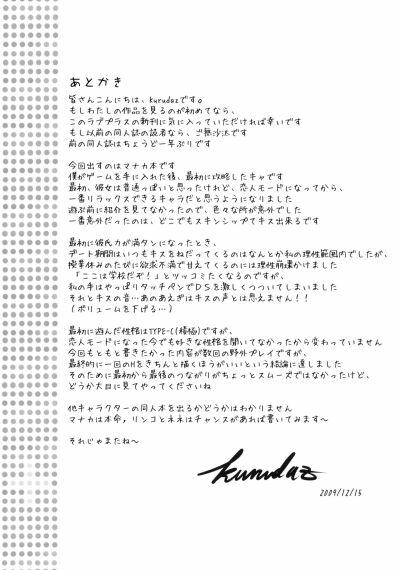 あとかき
皆さんこんにちは、kurudazです。
もしわたしの作品を見るのが初めてなら、
このラブプラスの新刊に気に入っていただければ幸いです
もし以前の同人誌の読者なら、ご無沙汰です
前の同人誌はちょうど一年ぶりです
今回出すのはマナカ本です
僕がゲームを手に入れた後、最初に攻略したキャラです
最初、彼女は普通っぽいと思ったけれど、恋人モードになってから、
一番リラックスできるキャラだと思うようになりました
遊ぶ前に紹介を見てなかったので、色々な所が意外でした
一番意外だったのは、どこでもスキンシップてキス出来るです
最初に彼氏力が満タンになったとき、
デート期間はいつもキスをねだってくるのはなんとか私の理性範囲内でしたが、
授業休みのたびに欲求不満で甘えてくるのには理性崩壊かけました
「ここは学校だぞ!」とツッコミたくなるのですが、
私の手はやっぱりタッチペンでDSを激しくつついてしまいました
それとキスの音…あのあえぎはキスの声とは思えません!!
(ボリュームを下げる…)
最初に遊んだ性格はTYPE-C(積極)ですが、
恋人モードになった今でも好きな性格を聞いてなかったから変わっていません
今回もともと書きたかった内容が数回の野外プレイですが、
最終的に一回のHをきちんと描くほうがいいという結論に達しました
そのために最初から最後のつながりがちょっとスムーズではなかったけど、
どうか大目に見てやってくださいね
他キャラクターの同人本を出るかどうかはわかりません
マナカは本命,リンコとネネはチャンスがあれば書いてみます~
それじゃまたね~
kurudaz
2009/12/15